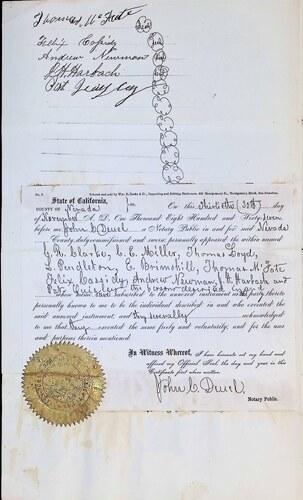 Thomas Mc Fate
Felix Cassidy
Andrew Newman
J H Harbach
Pat
Seal
State of California,
COUNTY OF Nevada
On this thirtieth (30th) day
of November A. D. One Thousand Eight Hundred and Sixty seven
before me John C Deuel a Notary Public in and for said Nevada
County, duly commissioned and sworn, personally appeared the within named
G. R. Clarke, C. C. Miller, Thomas Loyd,
S. Pendleton, E. Brimskill, Thomas McFate
Felix Cassidy, Andrew Newman, J H Harbach and
Pat
whose names subscribed to the annexed instrument as parties thereto
personally known to me to be the individual described in and who executed the
said annexed instrument, and they severally acknowledged
to me that they executed the same freely and voluntarily, and for the uses
and purposes therein mentioned.
In Witness Whereof, I have hereunto set my hand and
affixed my Official Seal, the day and year in this
Certificate first above written.
John C. Deuel
Notary Public.